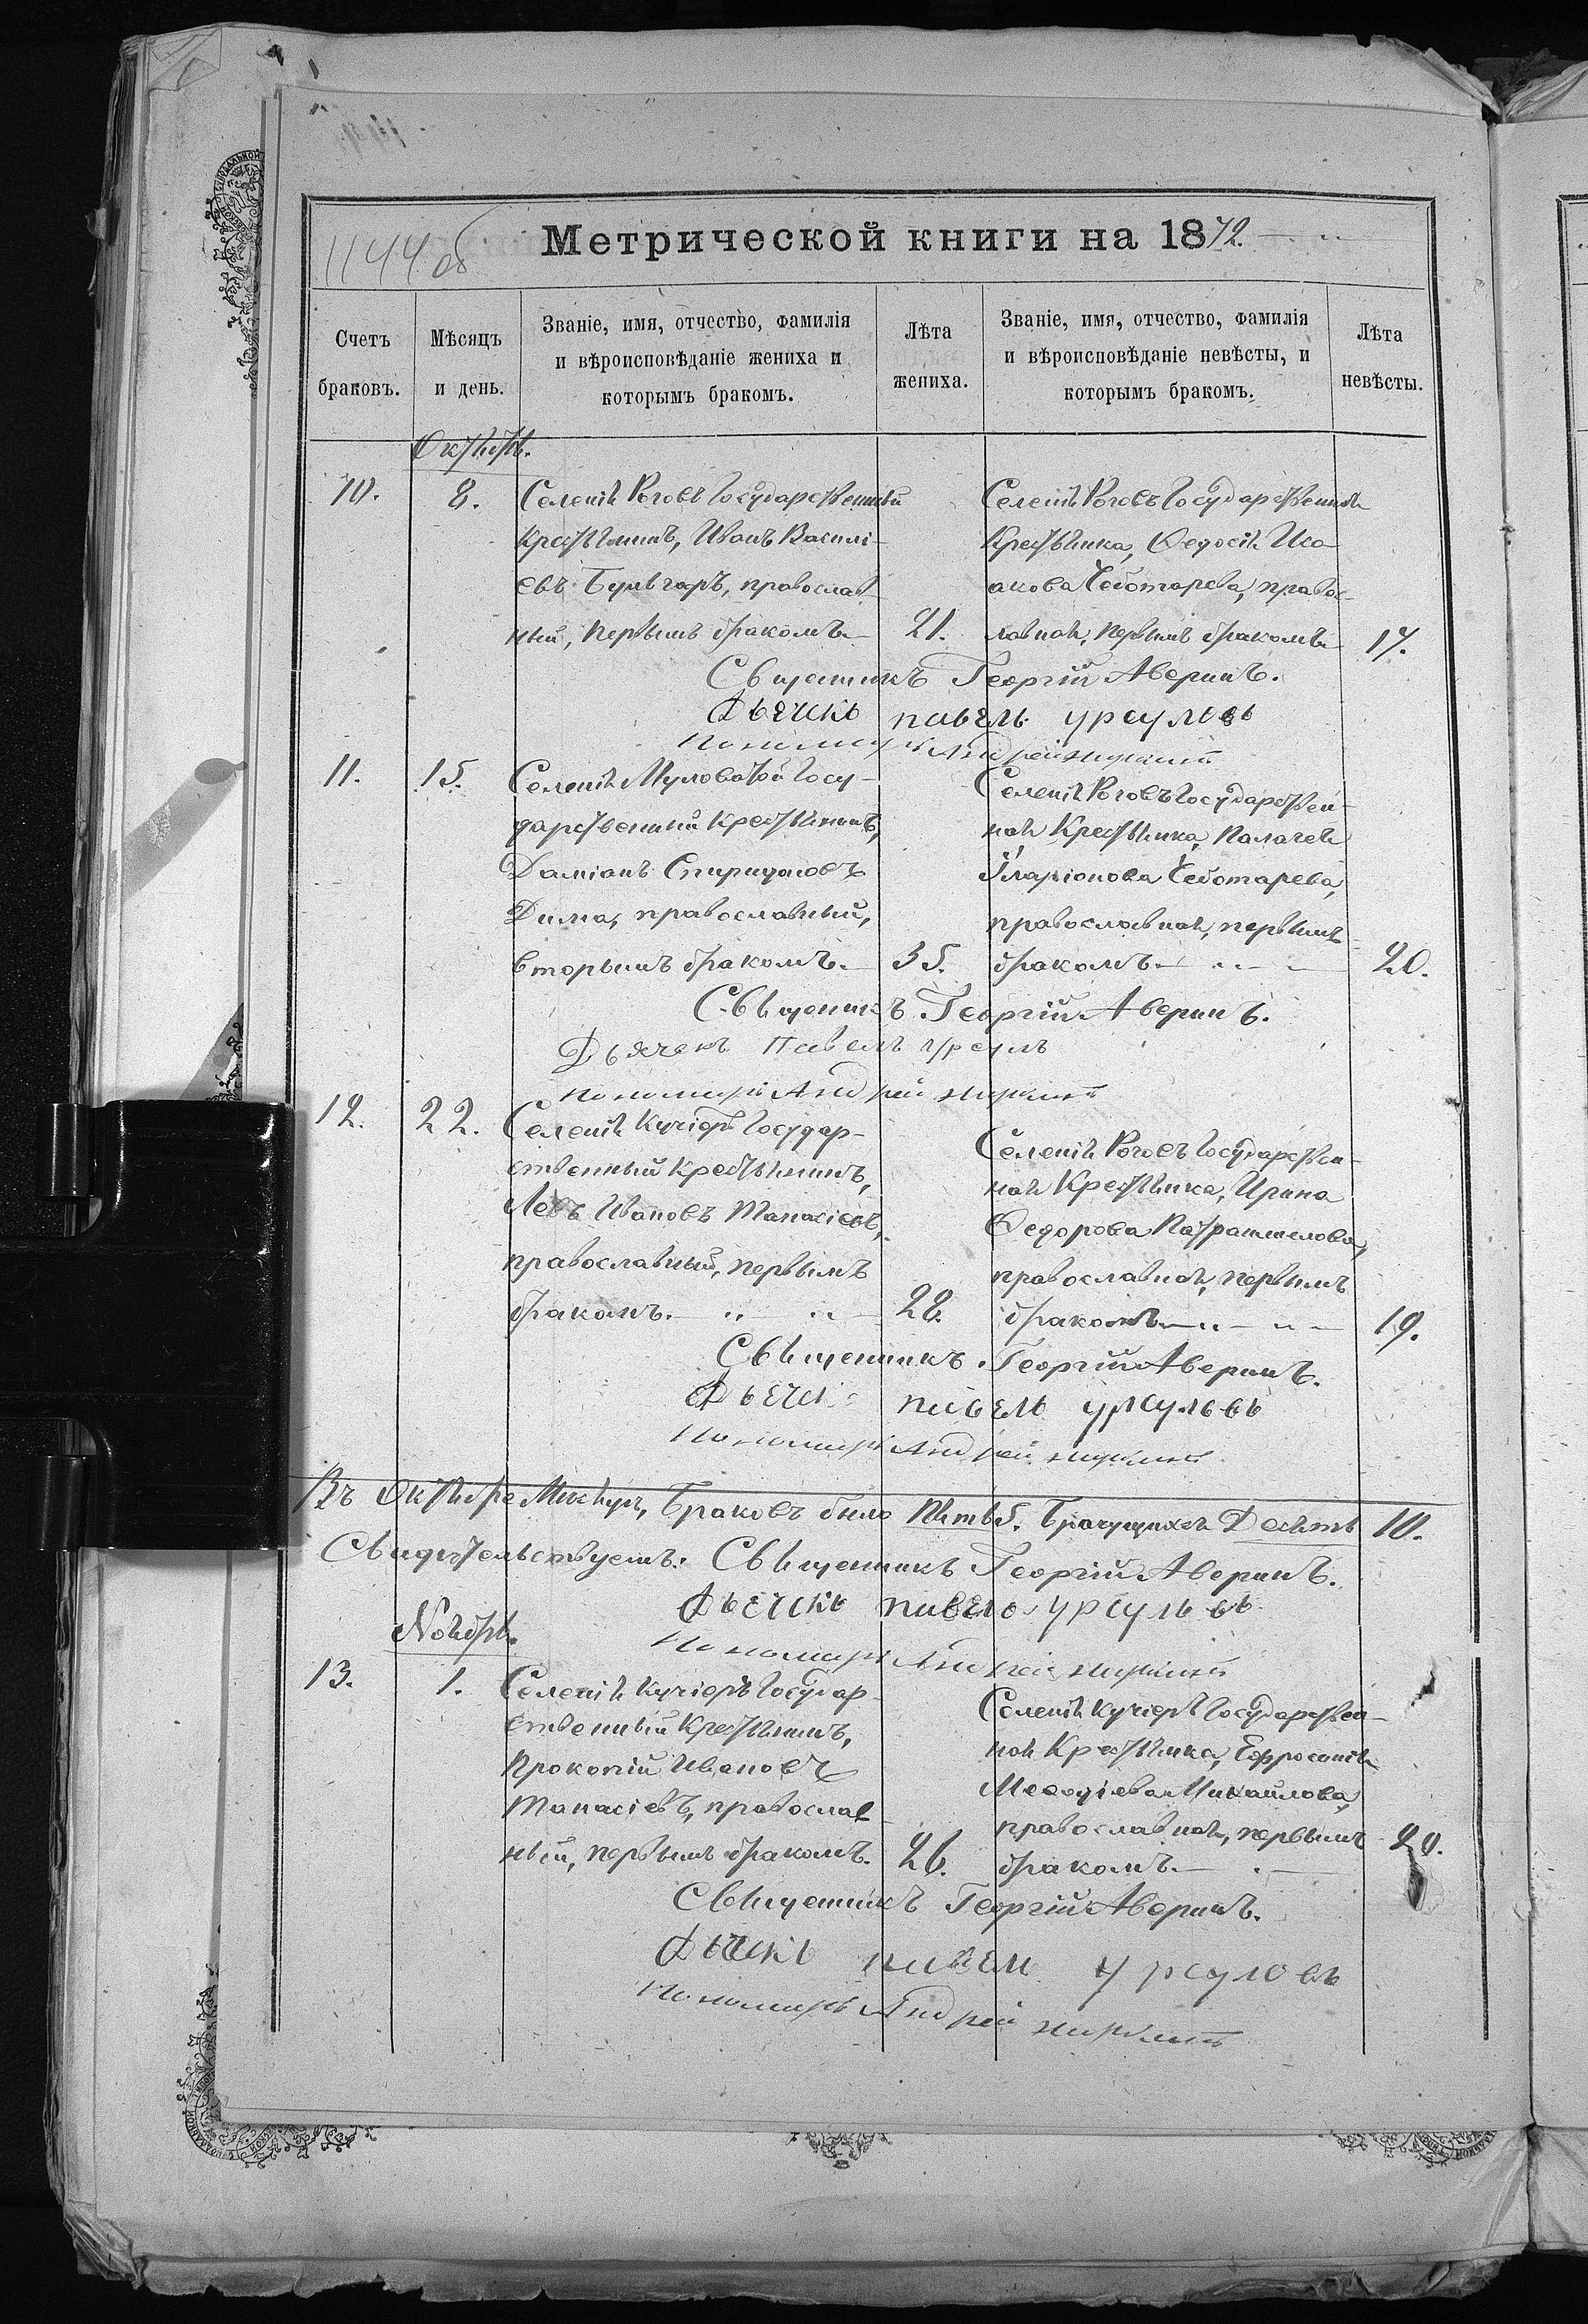 1144 об
Метрической книги на 1872.
Счетъ браковъ.
Мѣсяцъ и день.
Званіе, имя, отчество, фамилія и вѣроисповѣданіе жениха и которымъ бракомъ.
Лѣта жениха.
Званіе, имя, отчество, фамилія и вѣроисповѣданіе невѣсты, и которымъ бракомъ.
Лѣта невѣсты.
Октябрь.
10.
8.
Селенія Роговъ Государственный
Крестьянинъ, Иванъ Василі-
евъ Бульгаръ, православ-
ный, первымъ бракомъ.
21.
Селенія Роговъ Государственная
Крестьянка, Ѳедосія Иса-
акова Чеботарева, правос-
лавная, первымъ бракомъ
17.
Священникъ Георгій Аверинъ.
Дьячекъ Павелъ Урсуловъ
Пономарь Андрей
11.
15.
Селенія Муловатой Госу-
дарственный Крестьянинъ,
Даміанъ Спиридоновъ
Дима, православный,
вторымъ бракомъ.
35.
Селенія Роговъ Государствен-
ная Крестьянка, Палагея
Иларіонова Чеботарева,
православная, первымъ
бракомъ
20.
Священникъ Георгій Аверинъ.
Дьячекъ Павелъ Урсулъ
Пономарь Андрей
12.
22.
Селенія Кучіеръ Государ-
ственный Крестьянинъ,
Левъ Ивановъ Танасіевъ,
православный, первымъ
бракомъ.
28.
Селенія Роговъ Государствен-
ная Крестьянка, Ирина
Ѳедорова Патрашелова,
православная, первымъ
бракомъ
19.
Священникъ Георгій Аверинъ.
Дьячекъ Павелъ Урсуловъ
Пономарь Андрей
Въ Октябре Месяцъ, Браковъ было Пять 5. Брачущихся Десять 10.
Свидѣтельствуемъ: Священникъ Георгій Аверинъ.
Дьячекъ Павелъ Урсуловъ
Ноябрь.
Пономарь Андрей
13.
1.
Селенія Кучіеръ Государ-
ственный Крестьянинъ,
Прокопій Ивановъ
Танасіевъ, православ-
ный, первымъ бракомъ.
26.
Селенія Кучіеръ Государствен-
ная Крестьянка, Ефросинія
Меѳодіева Михайлова,
православная, первымъ
бракомъ.
20.
Священникъ Георгій Аверинъ.
Дьячекъ Павелъ Урсуловъ
Пономарь Андрей